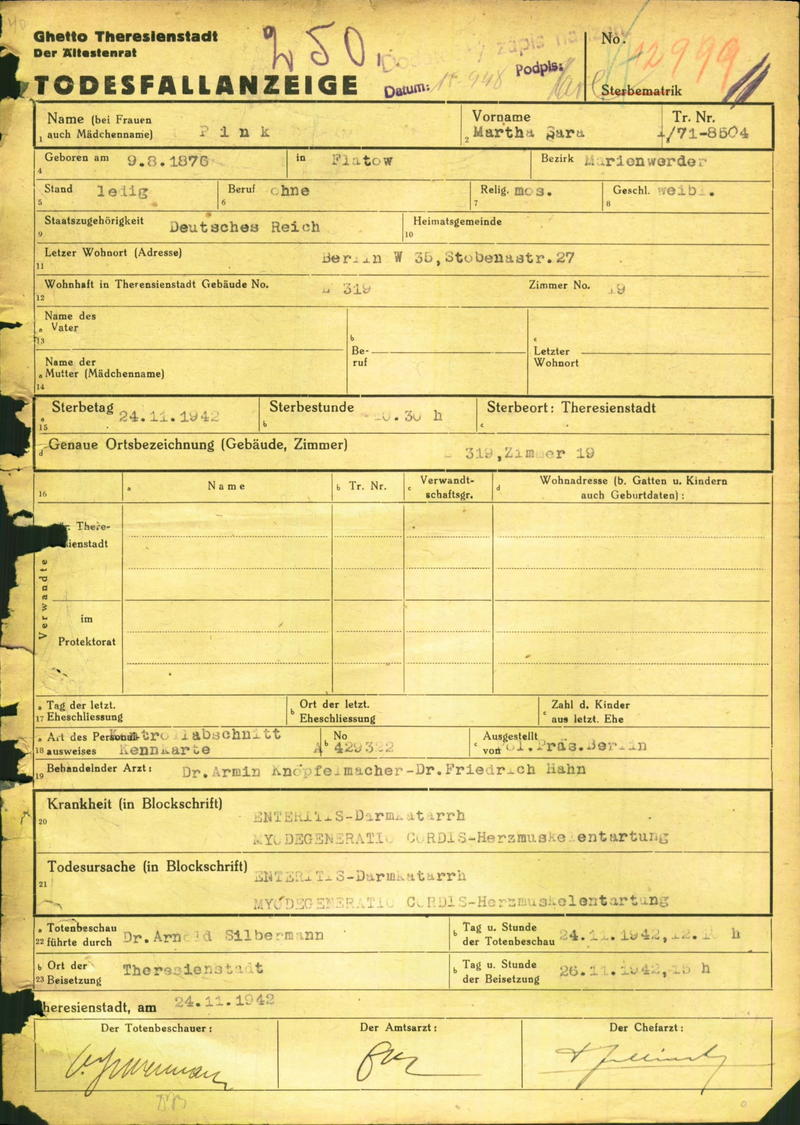 Ghetto Theresienstadt
Der Ältestenrat
TODESFALLANZEIGE
250
Datum: Podpis:
No. 12999
Sterbematrik
Name (bei Frauen auch Mädchenname) Pink
1
Vorname Martha Sara
2
Tr. Nr. I/71-8504
Geboren am 9.8.1876 in Flatow Bezirk Marienwerder
4
Stand ledig Beruf ohne Relig. mos. Geschl. weibl.
5 6 7 8
Staatszugehörigkeit Deutsches Reich Heimatsgemeinde
9 10
Letzer Wohnort (Adresse) Berlin W 35, Stobenastr.27
11
Wohnhaft in Therensienstadt Gebäude No. 319 Zimmer No. 19
12
Name des
a Vater
13
b Beruf
c Letzter Wohnort
Name der
a Mutter (Mädchenname)
14
Sterbetag 24.11.1942 Sterbestunde 30 h Sterbeort: Theresienstadt
a 15 b c
d Genaue Ortsbezeichnung (Gebäude, Zimmer) 319, Zimmer 19
16 a Name b Tr. Nr. c Verwandtschaftsgr. d Wohnadresse (b. Gatten u. Kindern auch Geburtdaten):
Verwandte
Theresienstadt
im
Protektorat
a Tag der letzt. b Ort der letzt. c Zahl d. Kinder
17 Eheschliessung Eheschliessung aus letzt. Ehe
a Art des Personal- Kontrollabschnitt No Ausgestellt
18 ausweises Kennkarte A b 429322 c von Pol.Präs.Berlin
19 Behandelnder Arzt: Dr.Armin Knöpfelmacher-Dr.Friedrich Hahn
Krankheit (in Blockschrift)
20
ENTERITIS-Darmkatarrh
MYODEGENERATIO CORDIS-Herzmuskelentartung
Todesursache (in Blockschrift)
21
ENTERITIS-Darmkatarrh
MYODEGENERATIO CORDIS-Herzmuskelentartung
a Totenbeschau b Tag u. Stunde
22 führte durch Dr.Arnold Silbermann der Totenbeschau 24.11.1942, h
b Ort der b Tag u. Stunde
23 Beisetzung Theresienstadt der Beisetzung 26.11.1942, h
Theresienstadt, am 24.11.1942
Der Totenbeschauer: Der Amtsarzt: Der Chefarzt: